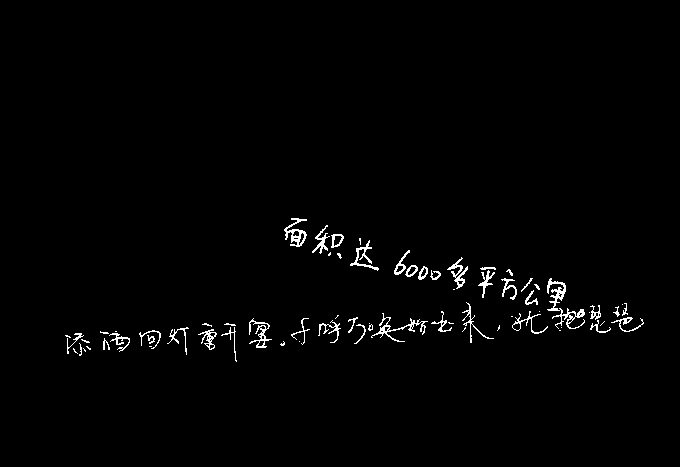 面积达6000多平方公里
添酒回灯重开宴。千呼万唤始出来，犹抱琵琶